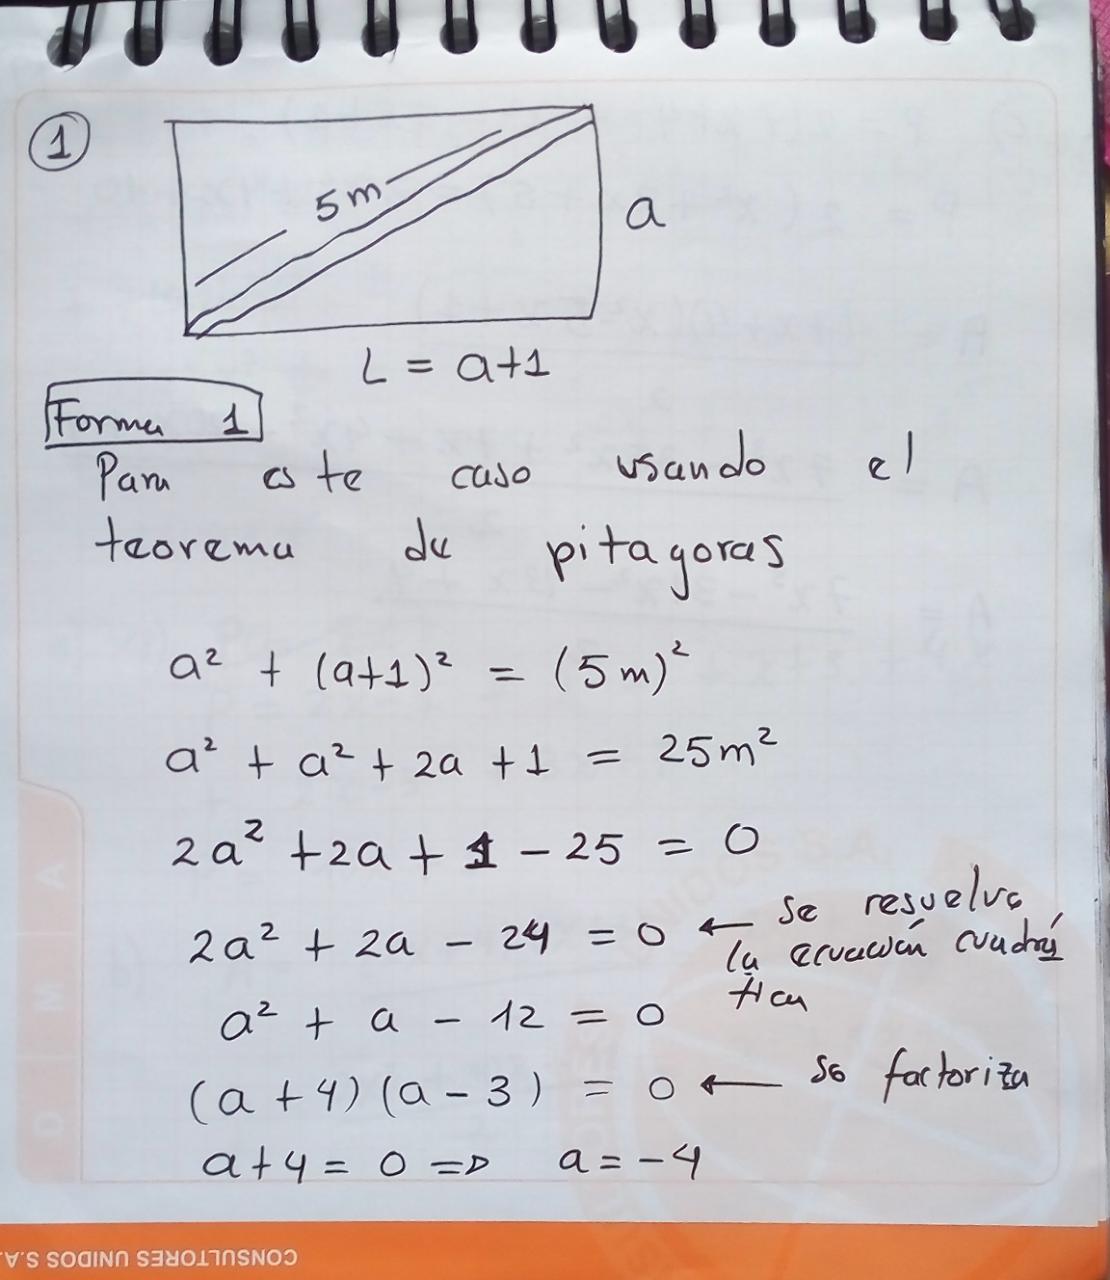 1
5m
a
L = a+1
Forma 1
Para este caso usando el
teorema de pitagoras
a² + (a+1)² = (5m)²
a² + a² + 2a + 1 = 25m²
2a² + 2a + 1 - 25 = 0
2a² + 2a - 24 = 0 ← se resuelve
la ecuación cuadrá
tica
a² + a - 12 = 0
(a + 4) (a - 3) = 0 ← se factoriza
a + 4 = 0 => a = -4
D M A
CONSULTORES UNIDOS S.A.